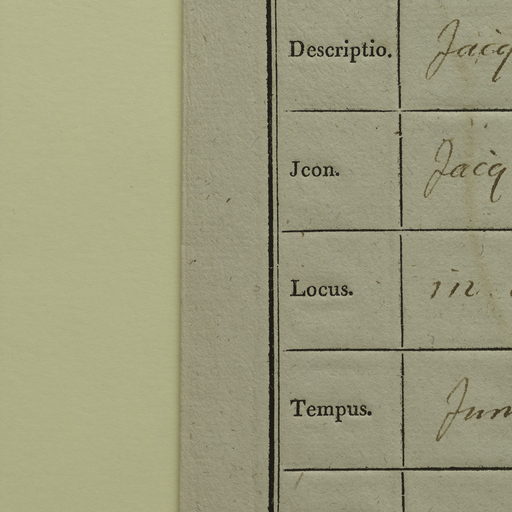 Descriptio. Jacq
Jcon. Jacq
Locus. in
Tempus. Jun